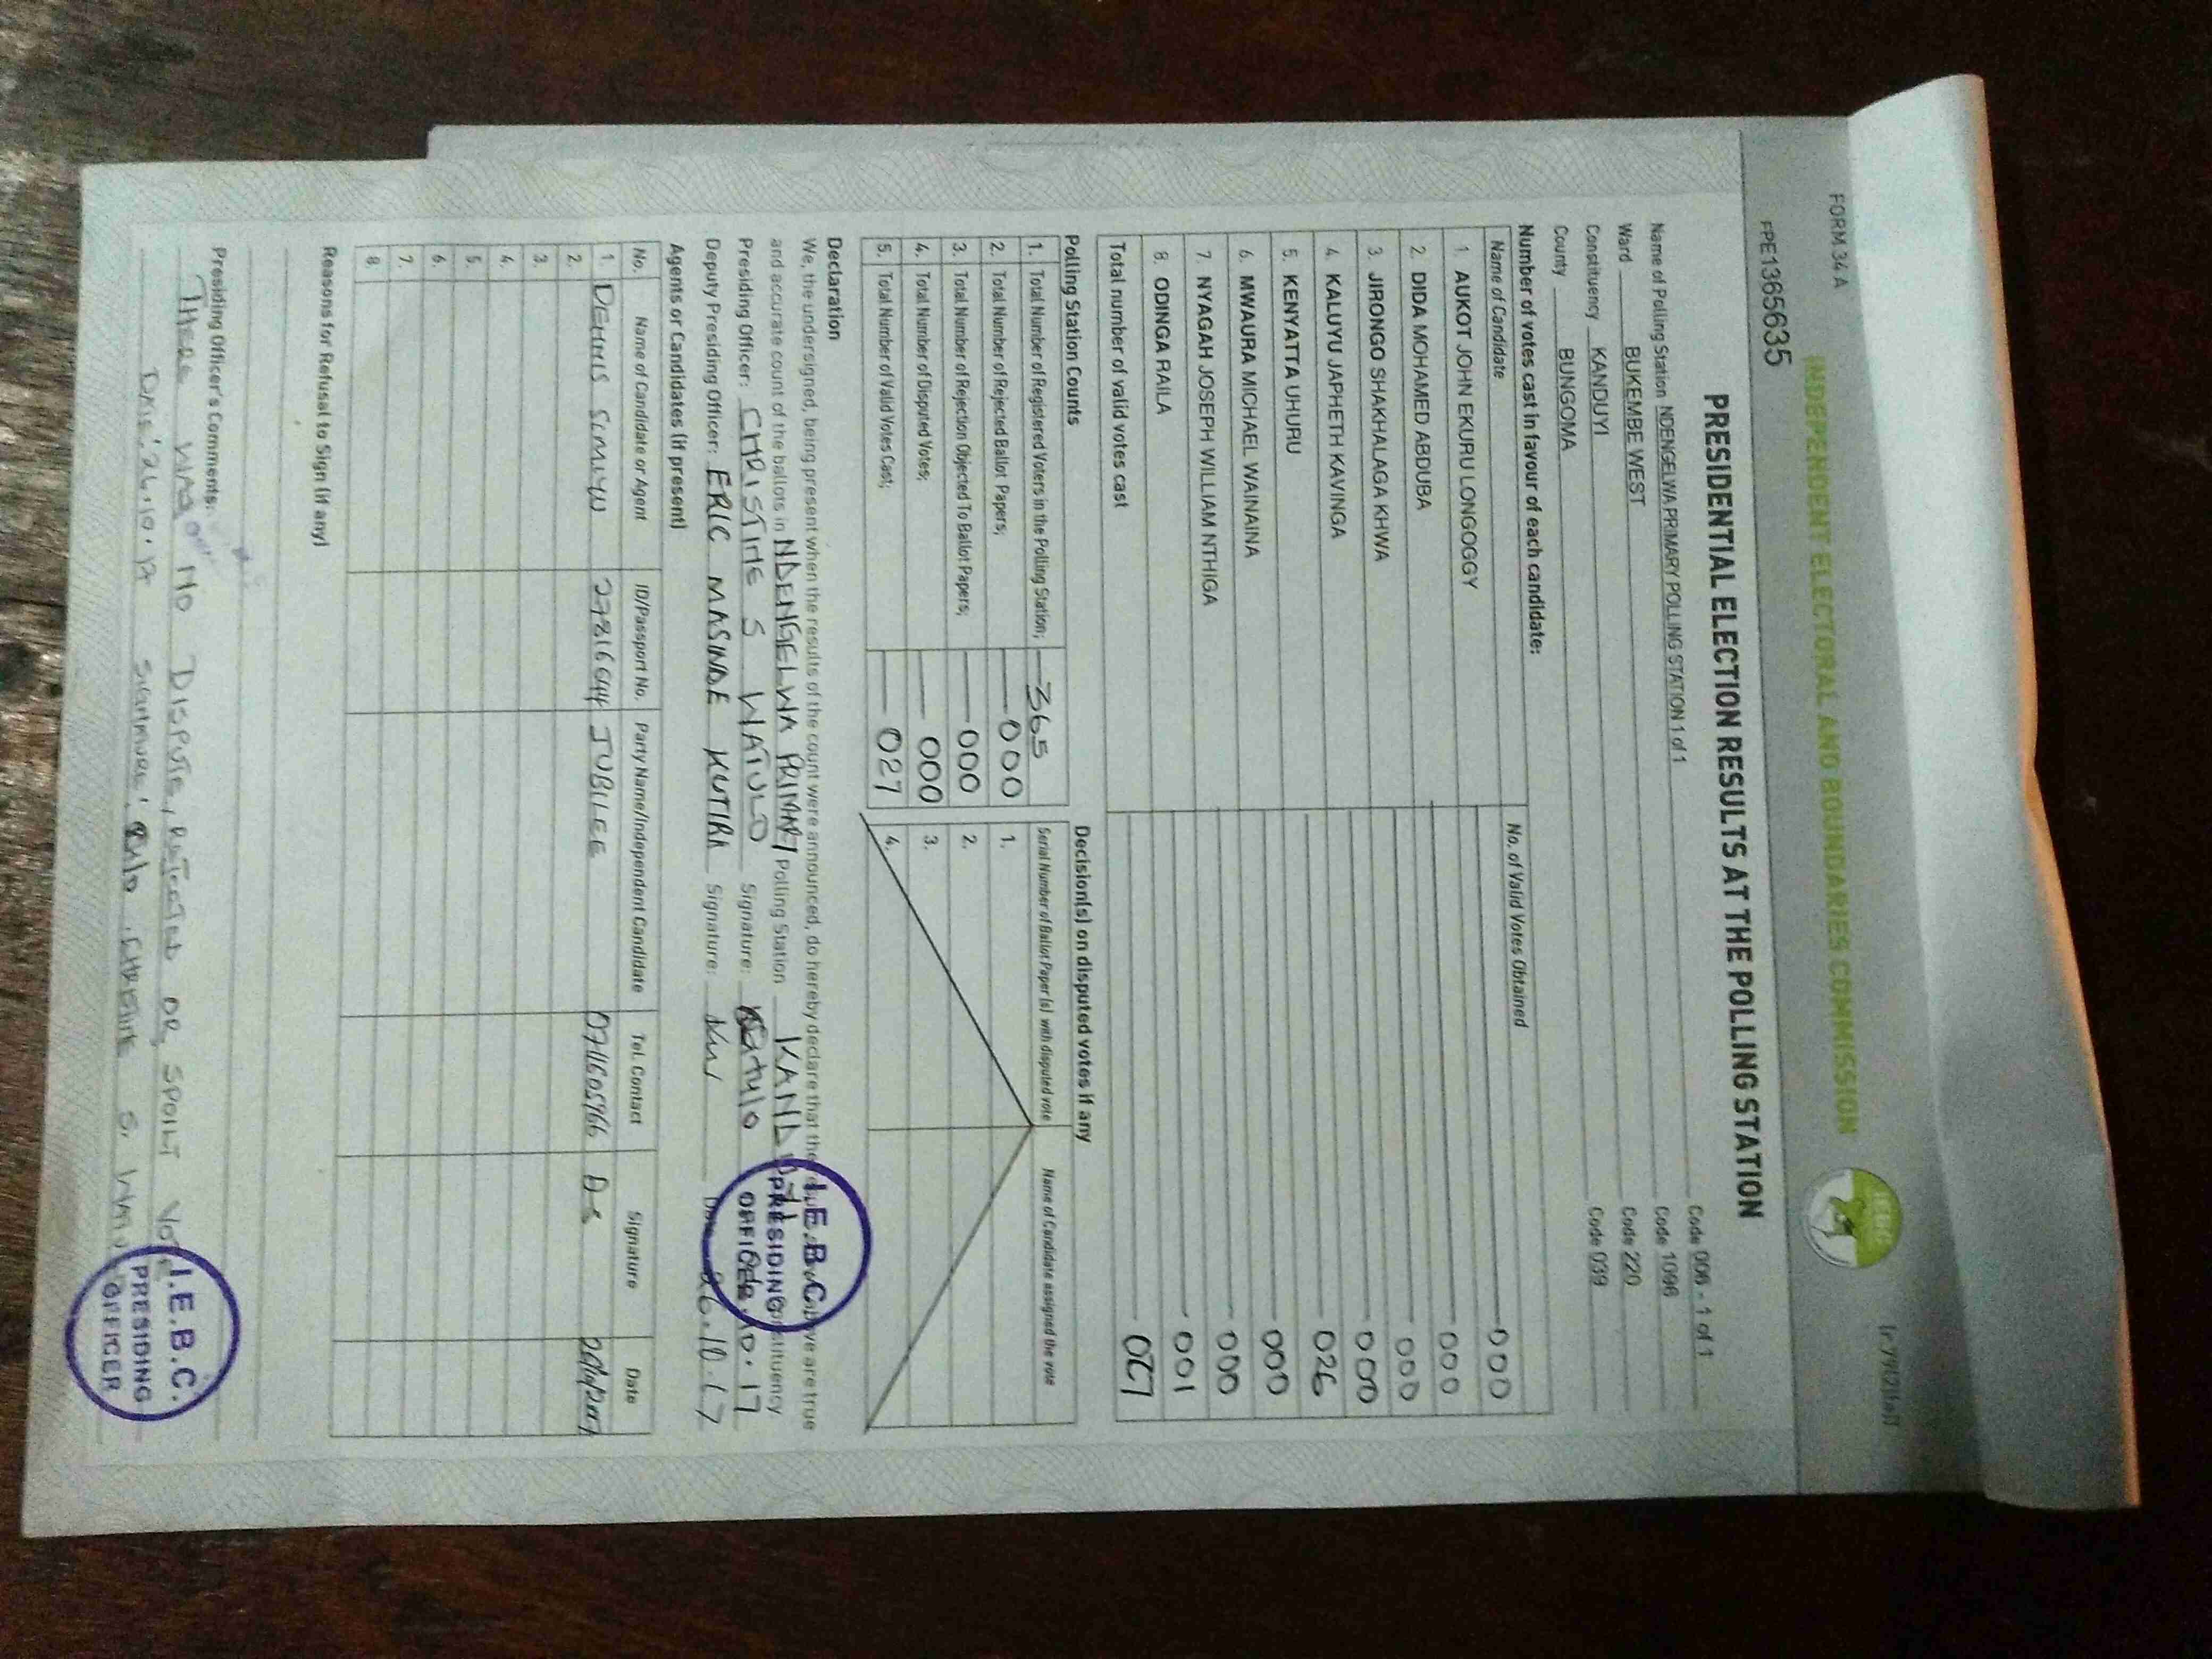 FORM 34 A
INDEPENDENT ELECTORAL AND BOUNDARIES COMMISSION
IEBC
FPE1365635
PRESIDENTIAL ELECTION RESULTS AT THE POLLING STATION
Name of Polling Station NDENGELWA PRIMARY POLLING STATION 1 of 1 Code 006 - 1 of 1
Ward BUKEMBE WEST Code 1096
Constituency KANDUYI Code 220
County BUNGOMA Code 039
Number of votes cast in favour of each candidate:
Name of Candidate No. of Valid Votes Obtained
1. AUKOT JOHN EKURU LONGOGGY 000
2. DIDA MOHAMED ABDUBA 000
3. JIRONGO SHAKHALAGA KHWA 000
4. KALUYU JAPHETH KAVINGA 000
5. KENYATTA UHURU 026
6. MWAURA MICHAEL WAINAINA 000
7. NYAGAH JOSEPH WILLIAM NTHIGA 000
8. ODINGA RAILA 001
Total number of valid votes cast 027
Polling Station Counts
1. Total Number of Registered Voters in the Polling Station; 365
2. Total Number of Rejected Ballot Papers; 000
3. Total Number of Rejection Objected To Ballot Papers; 000
4. Total Number of Disputed Votes; 000
5. Total Number of Valid Votes Cast; 027
Decision(s) on disputed votes if any
Serial Number of Ballot Paper (s) with disputed vote Name of Candidate assigned the vote
1.
2.
3.
4.
Declaration
We, the undersigned, being present when the results of the count were announced, do hereby declare that the above are true
and accurate count of the ballots in NDENGELWA PRIMARY Polling Station KANDUYI Constituency
Presiding Officer: CHRISTINE S WATULO Signature: Watulo 10.17
Deputy Presiding Officer: ERIC MASINDE KUTIRA Signature: 26.10.17
I.E.B.C.
PRESIDING
OFFICER
Agents or Candidates (if present)
No. Name of Candidate or Agent ID/Passport No. Party Name/Independent Candidate Tel. Contact Signature Date
1. DENNIS SIMIYU 27816644 JUBILEE 0711605966 D-S
2.
3.
4.
5.
6.
7.
8.
Reasons for Refusal to Sign (if any)
Presiding Officer's Comments:
There was no DISPUTE, REJECTED OR SPOILT
DATE: 26.10.17 SIGNATURE: CHRISTINE S.
I.E.B.C.
PRESIDING
OFFICER